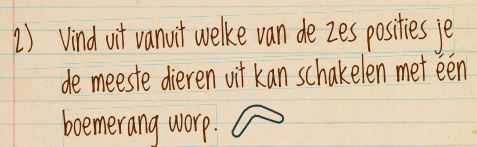 2) Vind uit vanuit welke van de zes posities je
de meeste dieren uit kan schakelen met één
boemerang worp.